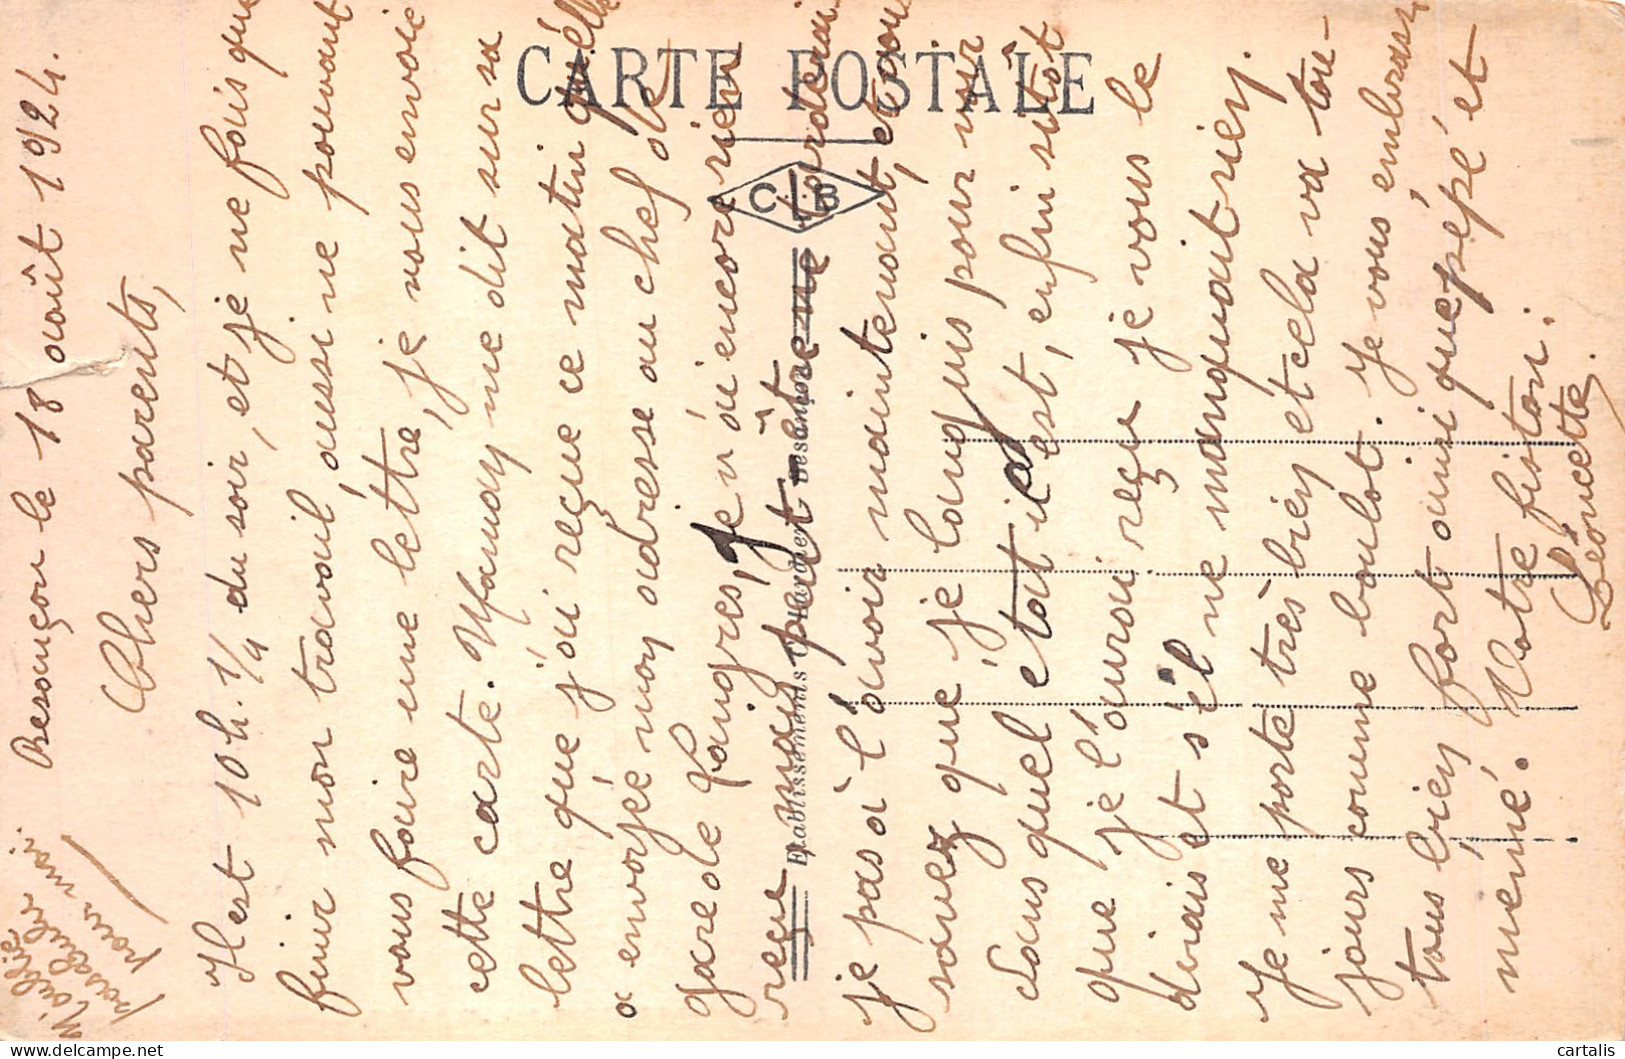 CARTE POSTALE
C L B
Etablissements C. Lardier Besançon
Besançon le 18 août 1924.
Chers parents,
Il est 10h. 1/4 du soir, et je ne fais que
finir mon travail, aussi ne pouvant
vous faire une lettre, je vous envoie
cette carte. Many me dit sur sa
lettre que j'ai reçue ce matin qu'elle
a envoyée mon adresse au chef de
gare de Langres, Je n'ai encore rien
reçu mais peut-être
je pas à l'avoir maintenant, et vous
savez que je languis pour voir
dans quel état il est, enfin sitôt
que je l'aurai reçu je vous le
dirais et s'il ne manquait rien.
Je me porte très bien et cela va tou-
jours comme boulot. Je vous embrasse
tous bien fort ainsi que pépé et
mémé. Votre fiston.
Léoncette.
N'oubliez
pas
pour moi.
cartalis